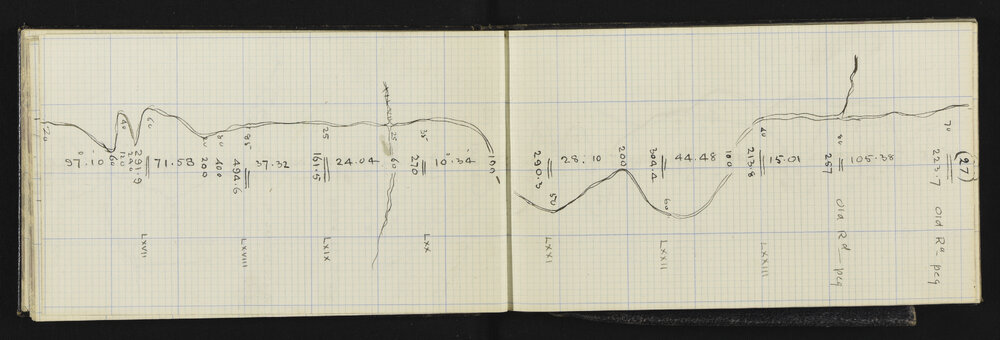 20
97°.10
60
40
120
240
291.9
60
LXVII
71.58
20
200
30
400
85
494.6
LXVIII
37.32
25
161.5
LXIX
24.04
25
60
35
270
LXX
10°.34
100
290.3
50
LXXI
28.10
200
60
304.4
LXXII
44.48
100
40
213.8
LXXIII
15.01
30
257
Old Rd peg
105.38
70
223.7
Old Rd peg
(27)